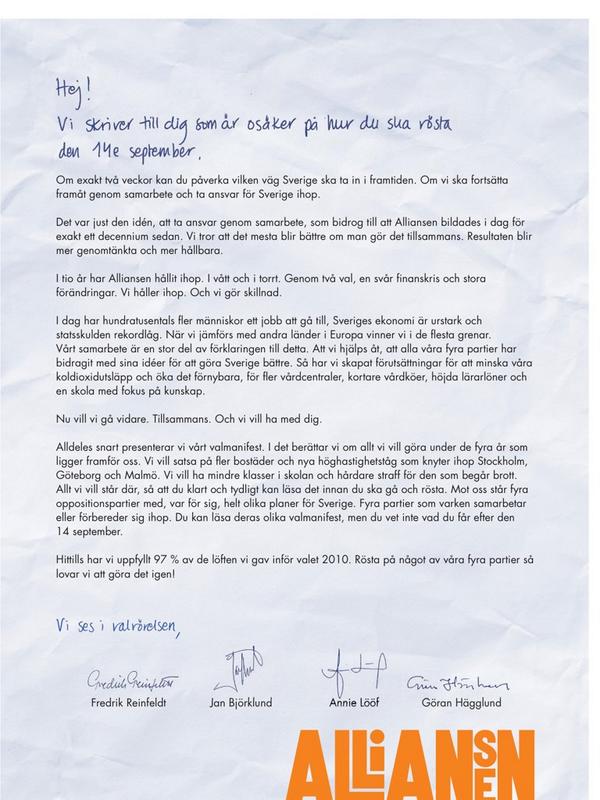 Hej!
Vi skriver till dig som är osäker på hur du ska rösta
den 14e september.
Om exakt två veckor kan du påverka vilken väg Sverige ska ta in i framtiden. Om vi ska fortsätta
framåt genom samarbete och ta ansvar för Sverige ihop.
Det var just den idén, att ta ansvar genom samarbete, som bidrog till att Alliansen bildades i dag för
exakt ett decennium sedan. Vi tror att det mesta blir bättre om man gör det tillsammans. Resultaten blir
mer genomtänkta och mer hållbara.
I tio år har Alliansen hållit ihop. I vått och i torrt. Genom två val, en svår finanskris och stora
förändringar. Vi håller ihop. Och vi gör skillnad.
I dag har hundratusentals fler människor ett jobb att gå till, Sveriges ekonomi är urstark och
statsskulden rekordlåg. När vi jämförs med andra länder i Europa vinner vi i de flesta grenar.
Vårt samarbete är en stor del av förklaringen till detta. Att vi hjälps åt, att alla våra fyra partier har
bidragit med sina idéer för att göra Sverige bättre. Så har vi skapat förutsättningar för att minska våra
koldioxidutsläpp och öka det förnybara, för fler vårdcentraler, kortare vårdköer, höjda lärarlöner och
en skola med fokus på kunskap.
Nu vill vi gå vidare. Tillsammans. Och vi vill ha med dig.
Alldeles snart presenterar vi vårt valmanifest. I det berättar vi om allt vi vill göra under de fyra år som
ligger framför oss. Vi vill satsa på fler bostäder och nya höghastighetståg som knyter ihop Stockholm,
Göteborg och Malmö. Vi vill ha mindre klasser i skolan och hårdare straff för den som begår brott.
Allt vi vill står där, så att du klart och tydligt kan läsa det innan du ska gå och rösta. Mot oss står fyra
oppositionspartier med, var för sig, helt olika planer för Sverige. Fyra partier som varken samarbetar
eller förbereder sig ihop. Du kan läsa deras olika valmanifest, men du vet inte vad du får efter den
14 september.
Hittills har vi uppfyllt 97 % av de löften vi gav inför valet 2010. Rösta på något av våra fyra partier så
lovar vi att göra det igen!
Vi ses i valrörelsen,
Fredrik Reinfeldt Jan Björklund Annie Lööf Göran Hägglund
ALLIANSEN